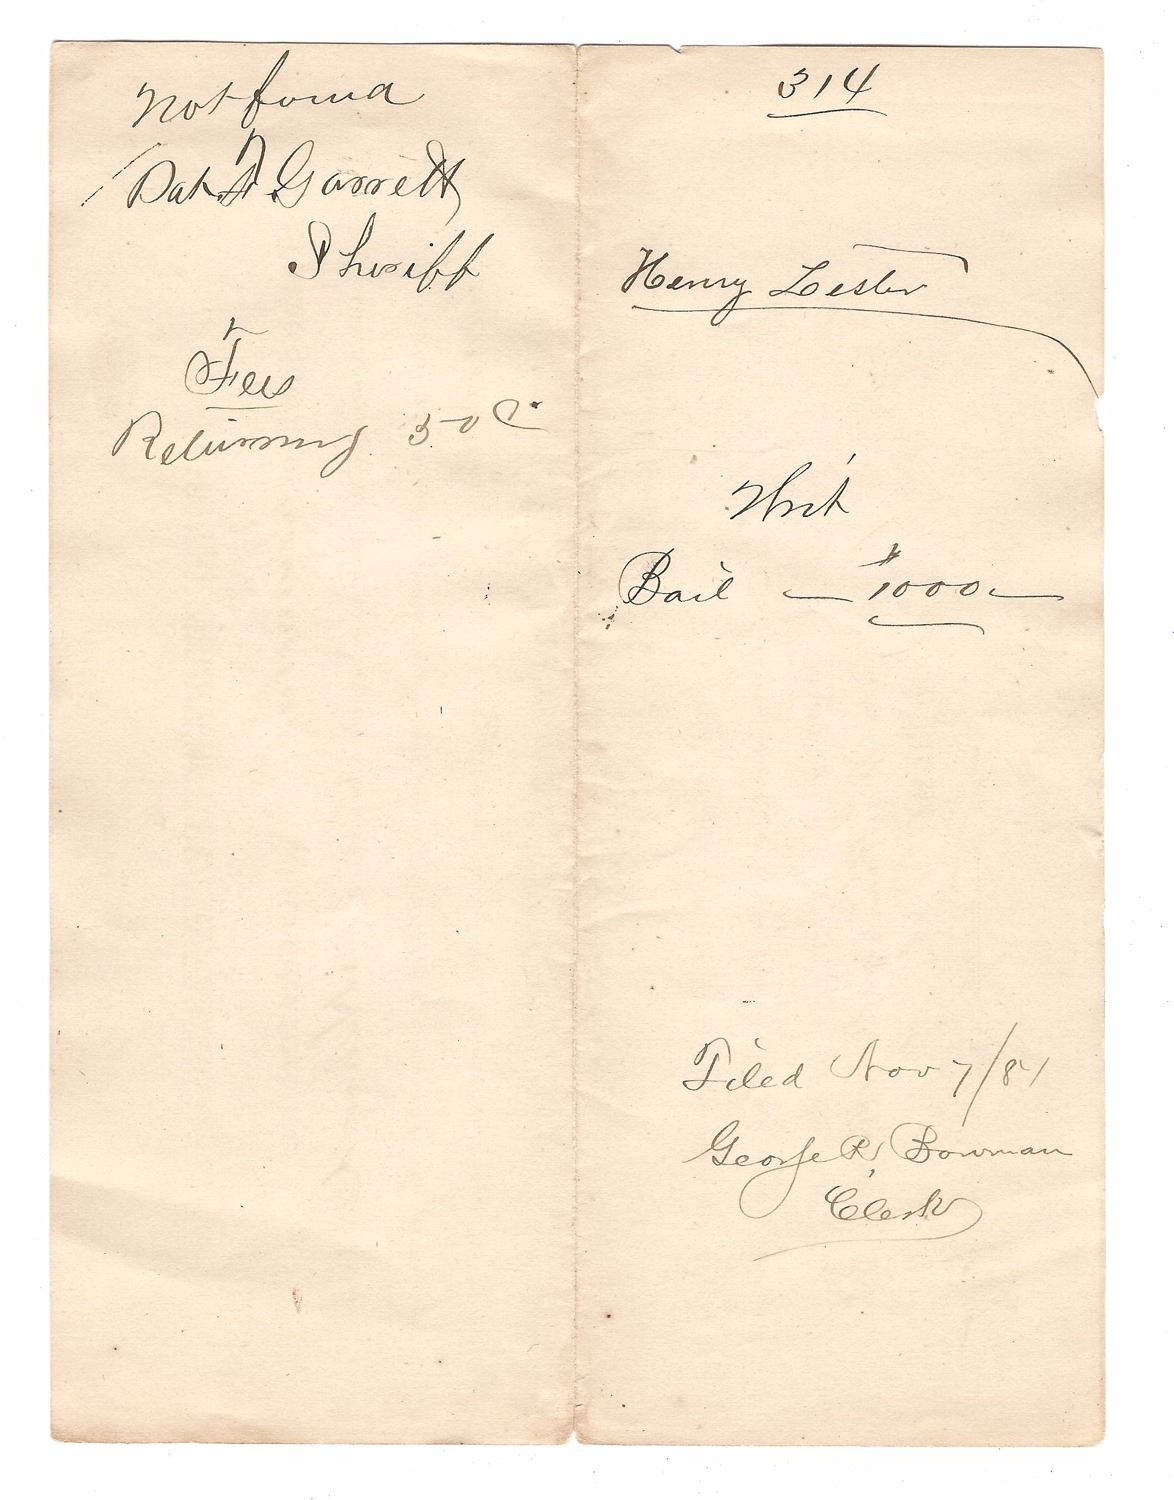 Not found
Pat. F. Garrett
Sheriff
Fees
Returning 50 c
314
Henry Lester
Writ
Bail $1000
Filed Nov 7/84
George R. Bowman
Clerk